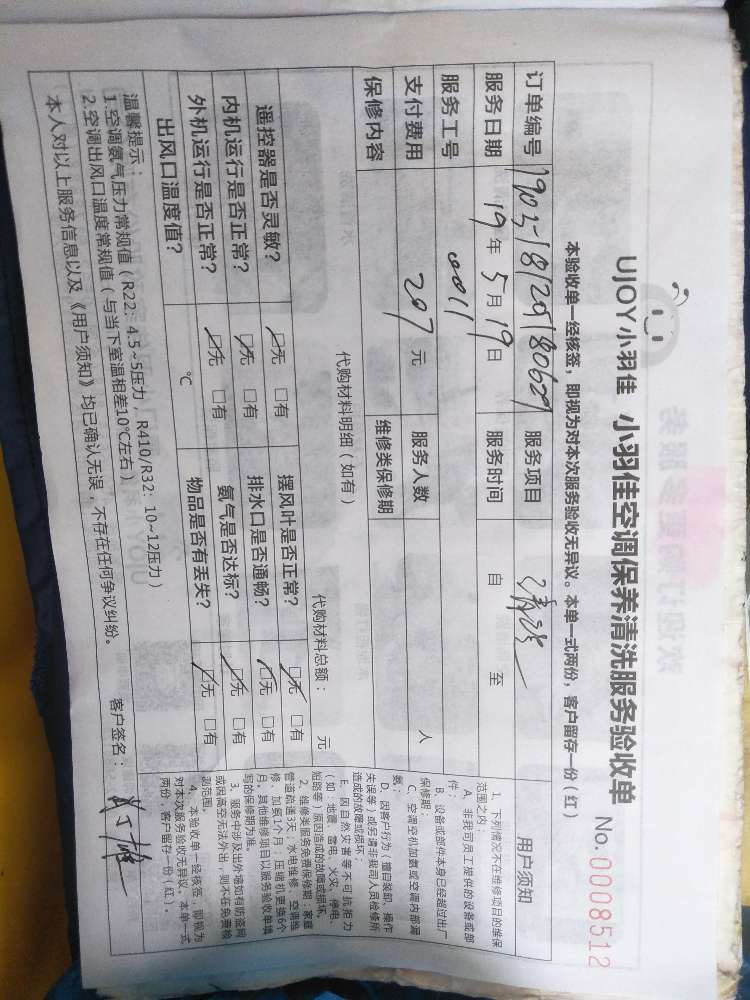 UJOY小羽佳 小羽佳空调保养清洗服务验收单
No.0008512
本验收单一经核签，即视为对本次服务验收无异议。本单一式两份，客户留存一份（红）
订单编号 服务项目 清洗
服务日期 19年5月19日 服务时间 自 至
服务工号 0011
支付费用 207元 服务人数 人
保修内容 维修类保修期
代购材料明细（如有） 代购材料总额： 元
遥控器是否灵敏？ ☑无 □有 摆风叶是否正常？ ☑无 □有
内机运行是否正常？ ☑无 □有 排水口是否通畅？ ☑无 □有
外机运行是否正常？ ☑无 □有 氨气是否达标？ ☑无 □有
出风口温度值？ ℃ 物品是否有丢失？ ☑无 □有
温馨提示：
1.空调氨气压力常规值（R22：4.5~5压力，R410/R32：10~12压力）
2.空调出风口温度常规值（与当下室温相差10℃左右）
本人对以上服务信息以及《用户须知》均已确认无误，不存在任何争议纠纷。 客户签名：
用户须知
1、下列情况不在维修项目的维保
范围之内：
A、非我司员工提供的设备或部
件；
B、设备或部件本身已经超过出厂
保修期；
C、空调空机加氨或空调内部漏
氨；
D、因客户行为（擅自装卸、操作
失误等）或另请非我司人员检修所
造成的故障或损坏；
E、因自然灾害等不可抗拒力
（如：地震、雷电、火灾、停电、
短路等）原因造成的故障或损坏。
2、维修类服务免费保修期：家庭
管道疏通3天，水电维修、空调检
修、加氨1个月；压缩机更换6个
月，其他维修项目以服务验收单填
写的保修期为准。
3、服务中涉及出外墙如有防盗网
或因高空无法外出，则不在免费检
测范围。
4、本验收单一经核签，即视为
对本次服务验收无异议。本单一式
两份，客户留存一份（红）。